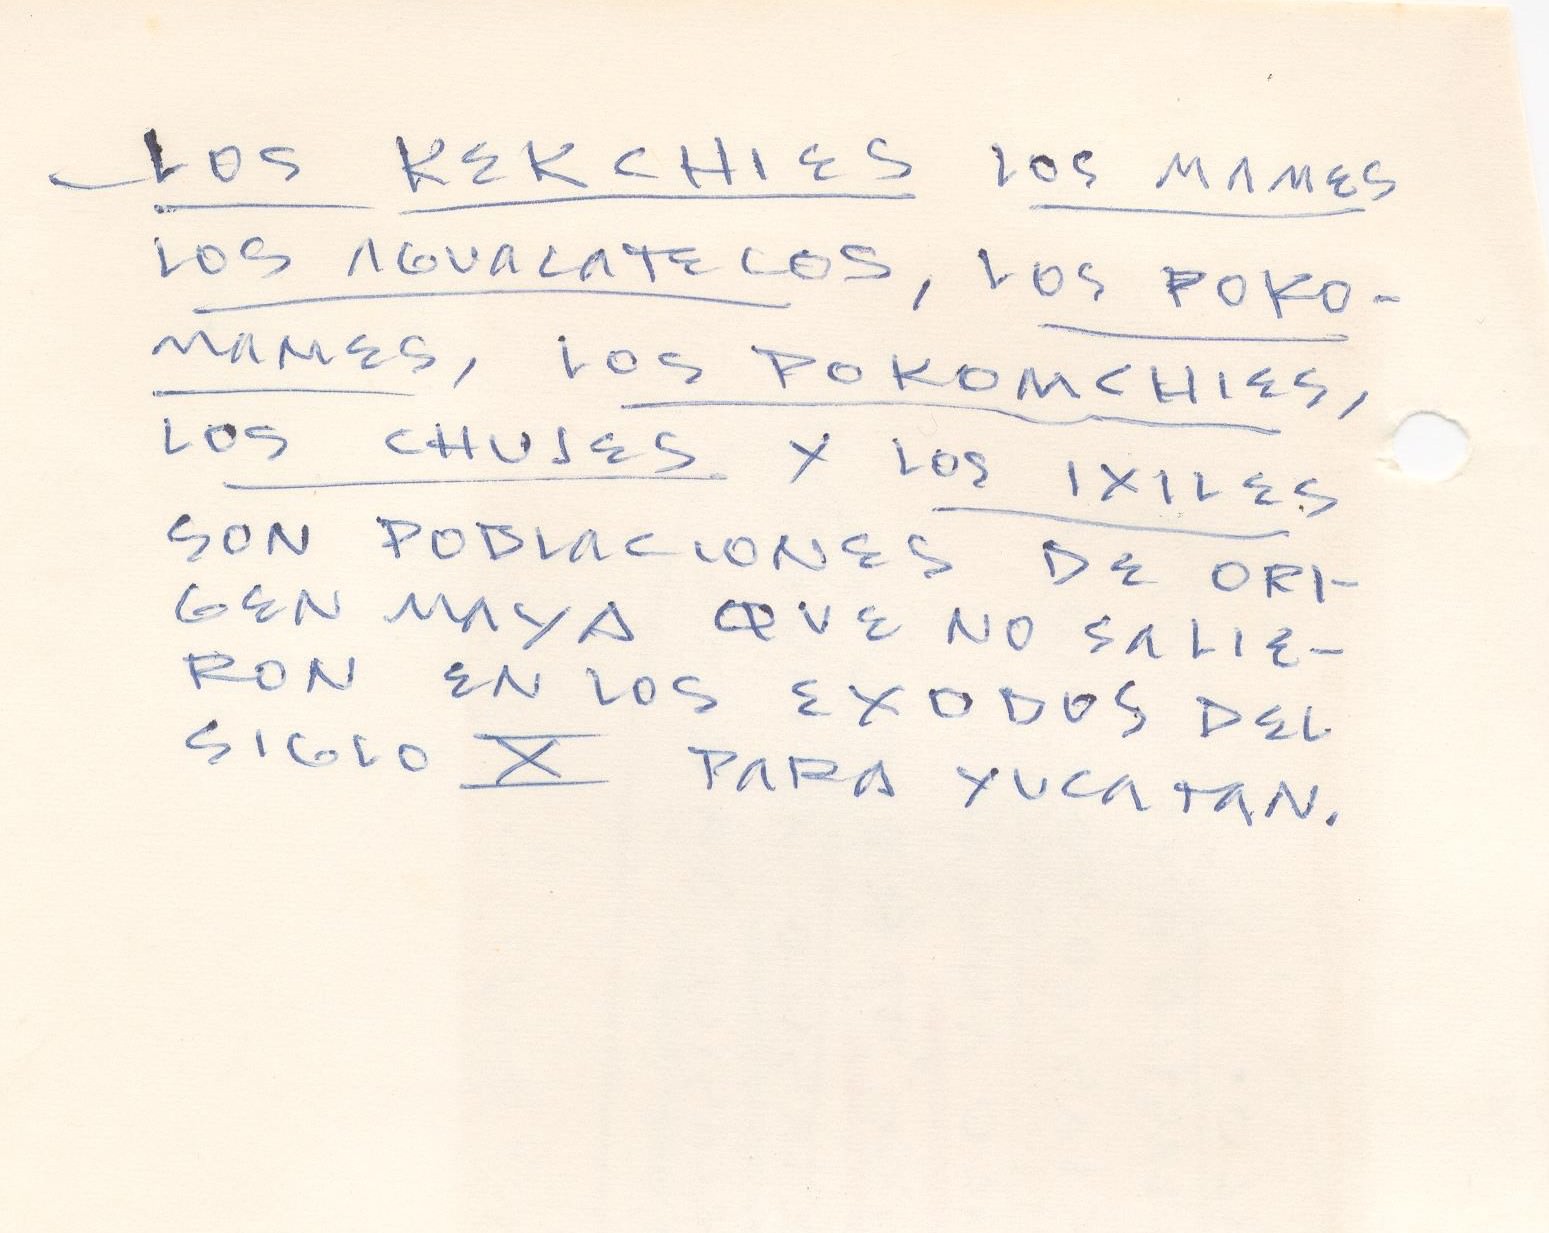 LOS KEKCHIES LOS MAMES
LOS AGUACATECOS, LOS POKO-
MAMES, LOS POKOMCHIES,
LOS CHUJES Y LOS IXILES
SON POBLACIONES DE ORI-
GEN MAYA QUE NO SALIE-
RON EN LOS EXODOS DEL
SIGLO X PARA YUCATAN.